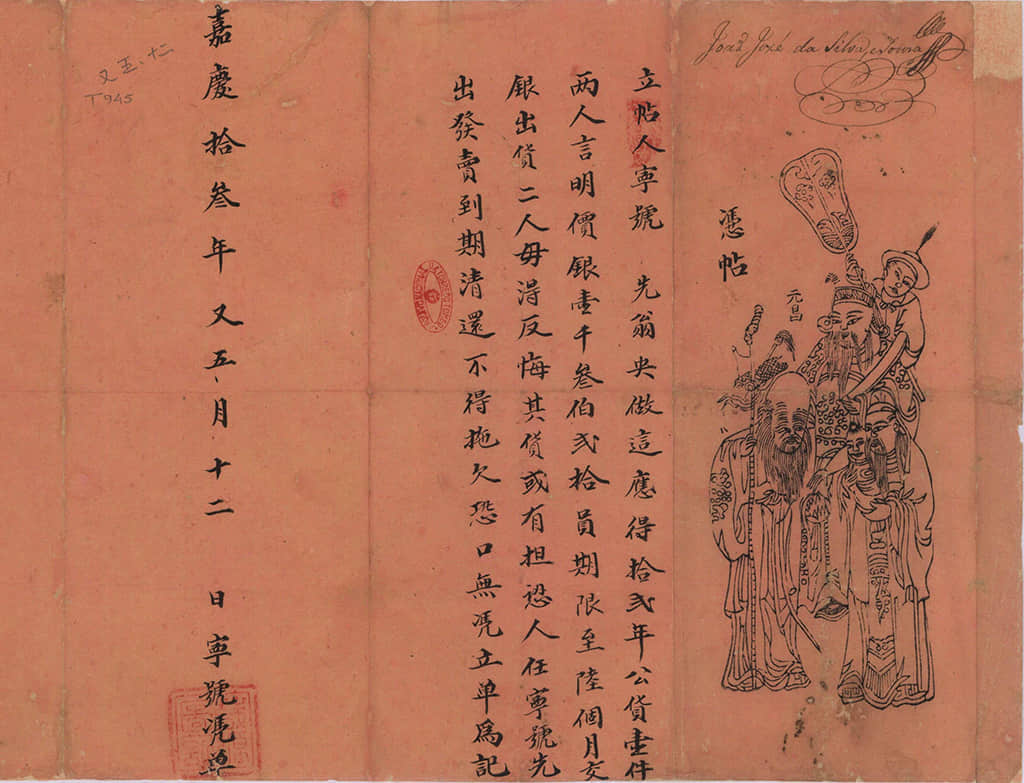 João José da Silva e Souza
憑帖
元昌
立帖人寧號 先翁央做這應得拾弍年公貨壹件
两人言明價銀壹千叁伯弍拾員期限至陸個月交
銀出貨二人毋得反悔其貨或有担恐人任寧號先
出發賣到期清還不得拖欠恐口無凴立单為記
嘉慶拾叁年又五月十二 日寧號凴单
又五、十二
T945